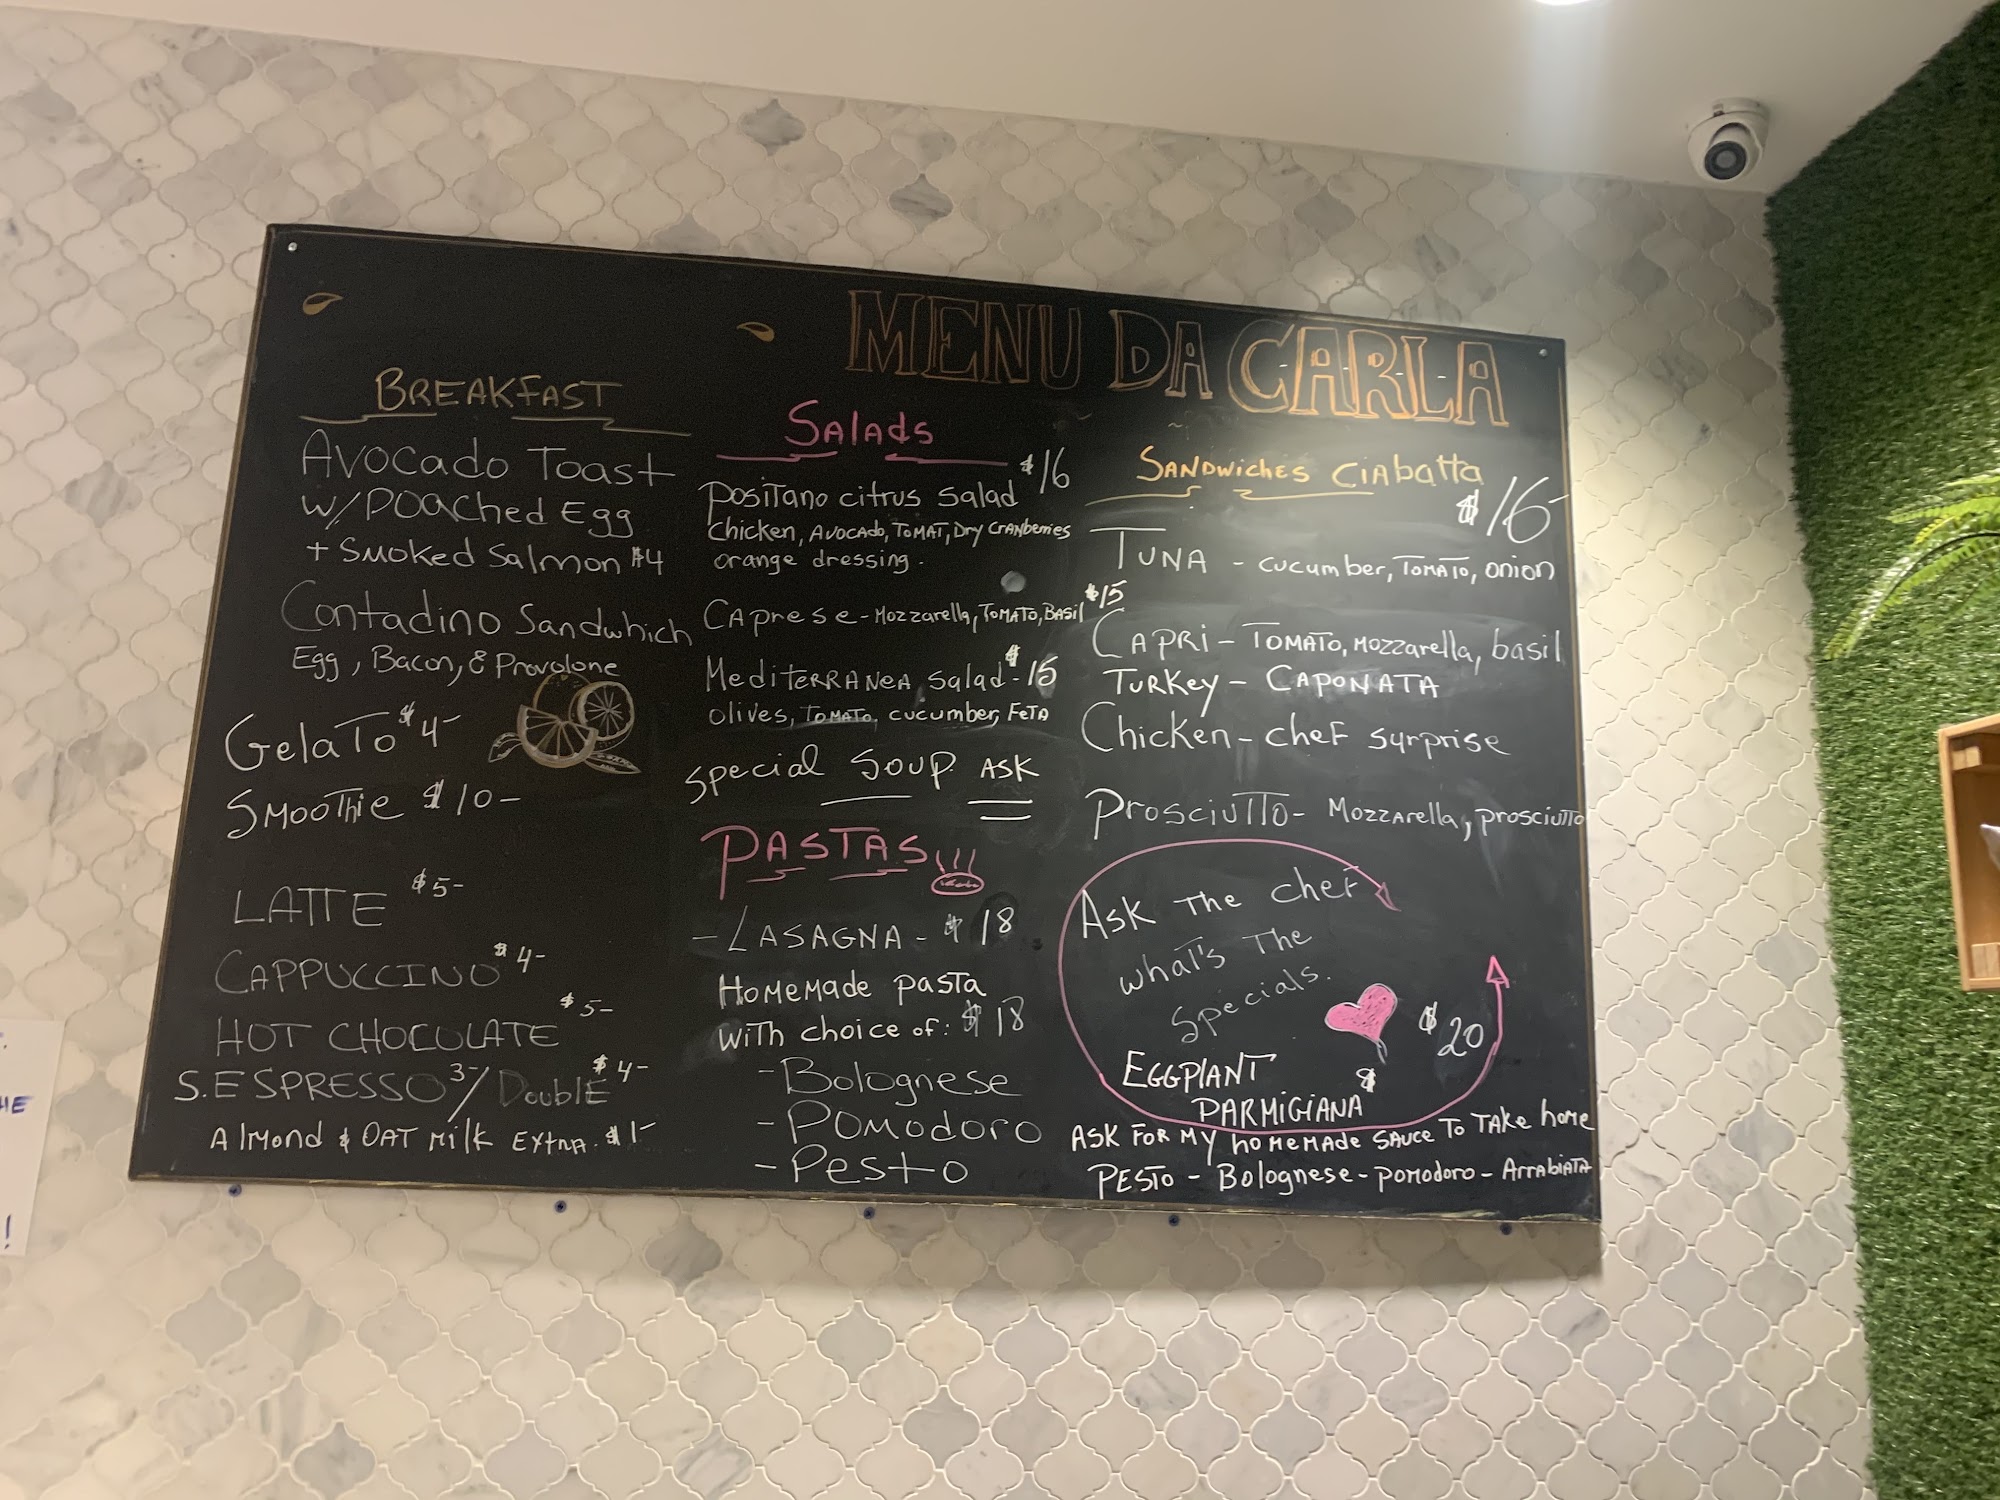 MENU DA CARLA
BREAKFAST
AVOCADO TOAST
W/POACHED EGG
+ SMOKED SALMON $4
CONTADINO SANDWHICH
EGG, BACON, & PROVOLONE
GELATO $4-
SMOOTHIE $10-
LATTE $5-
CAPPUCCINO $4-
HOT CHOCOLATE $5-
S.ESPRESSO 3-/DOUBLE $4-
ALMOND & OAT MILK EXTRA. $1-
SALADS
POSITANO CITRUS SALAD $16
CHICKEN, AVOCADO, TOMAT, DRY CRANBERRIES
ORANGE DRESSING.
CAPRESE - MOZZARELLA, TOMATO, BASIL $15
MEDITERRANEA SALAD - $15
OLIVES, TOMATO, CUCUMBER, FETA
SPECIAL SOUP ASK
PASTAS
- LASAGNA - $18
HOMEMADE PASTA
WITH CHOICE OF: $18
- BOLOGNESE
- POMODORO
- PESTO
SANDWICHES CIABATTA
$16-
TUNA - CUCUMBER, TOMATO, ONION
CAPRI - TOMATO, MOZZARELLA, BASIL
TURKEY - CAPONATA
CHICKEN - CHEF SURPRISE
PROSCIUTTO - MOZZARELLA, PROSCIUTTO
ASK THE CHEF
WHAT'S THE
SPECIALS.
$20
EGGPLANT $
PARMIGIANA
ASK FOR MY HOMEMADE SAUCE TO TAKE HOME
PESTO - BOLOGNESE - POMODORO - ARRABIATA
HE
!